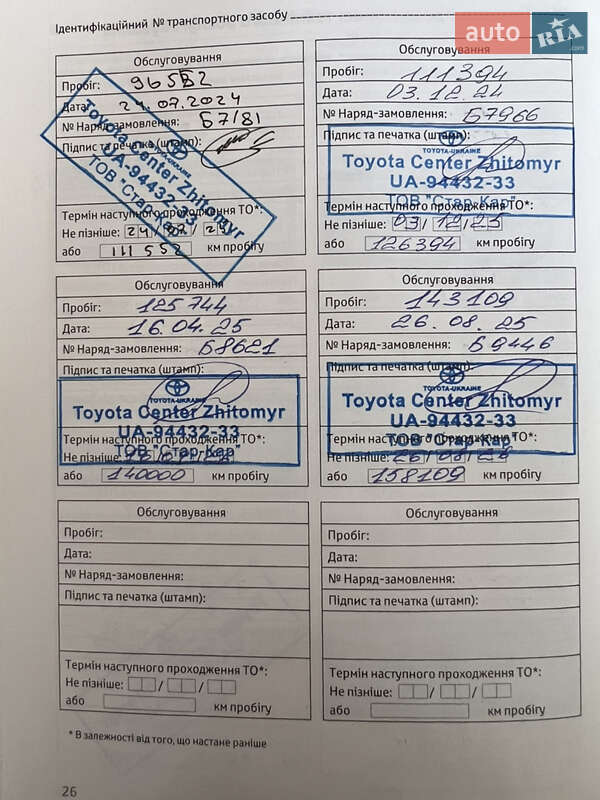 Ідентифікаційний № транспортного засобу
auto RIA.com
Обслуговування
Пробіг: 96552
Дата: 24.07.2024
№ Наряд-замовлення: Б7181
Підпис та печатка (штамп):
TOYOTA-UKRAINE
Toyota Center Zhitomyr
UA-94432-33
ТОВ "Стар-Кар"
Термін наступного проходження ТО*:
Не пізніше: 24/07/25
або 111 552 км пробігу
Обслуговування
Пробіг: 111394
Дата: 03.12.24
№ Наряд-замовлення: Б7966
Підпис та печатка (штамп):
TOYOTA-UKRAINE
Toyota Center Zhitomyr
UA-94432-33
ТОВ "Стар-Кар"
Термін наступного проходження ТО*:
Не пізніше: 03/12/25
або 126394 км пробігу
Обслуговування
Пробіг: 125744
Дата: 16.04.25
№ Наряд-замовлення: Б8621
Підпис та печатка (штамп):
TOYOTA-UKRAINE
Toyota Center Zhitomyr
UA-94432-33
ТОВ "Стар-Кар"
Термін наступного проходження ТО*:
Не пізніше:
або 140000 км пробігу
Обслуговування
Пробіг: 143109
Дата: 26.08.25
№ Наряд-замовлення: Б9446
Підпис та печатка (штамп):
TOYOTA-UKRAINE
Toyota Center Zhitomyr
UA-94432-33
ТОВ "Стар-Кар"
Термін наступного проходження ТО*:
Не пізніше: 26/08/26
або 158109 км пробігу
Обслуговування
Пробіг:
Дата:
№ Наряд-замовлення:
Підпис та печатка (штамп):
Термін наступного проходження ТО*:
Не пізніше:
або км пробігу
Обслуговування
Пробіг:
Дата:
№ Наряд-замовлення:
Підпис та печатка (штамп):
Термін наступного проходження ТО*:
Не пізніше:
або км пробігу
* В залежності від того, що настане раніше
26